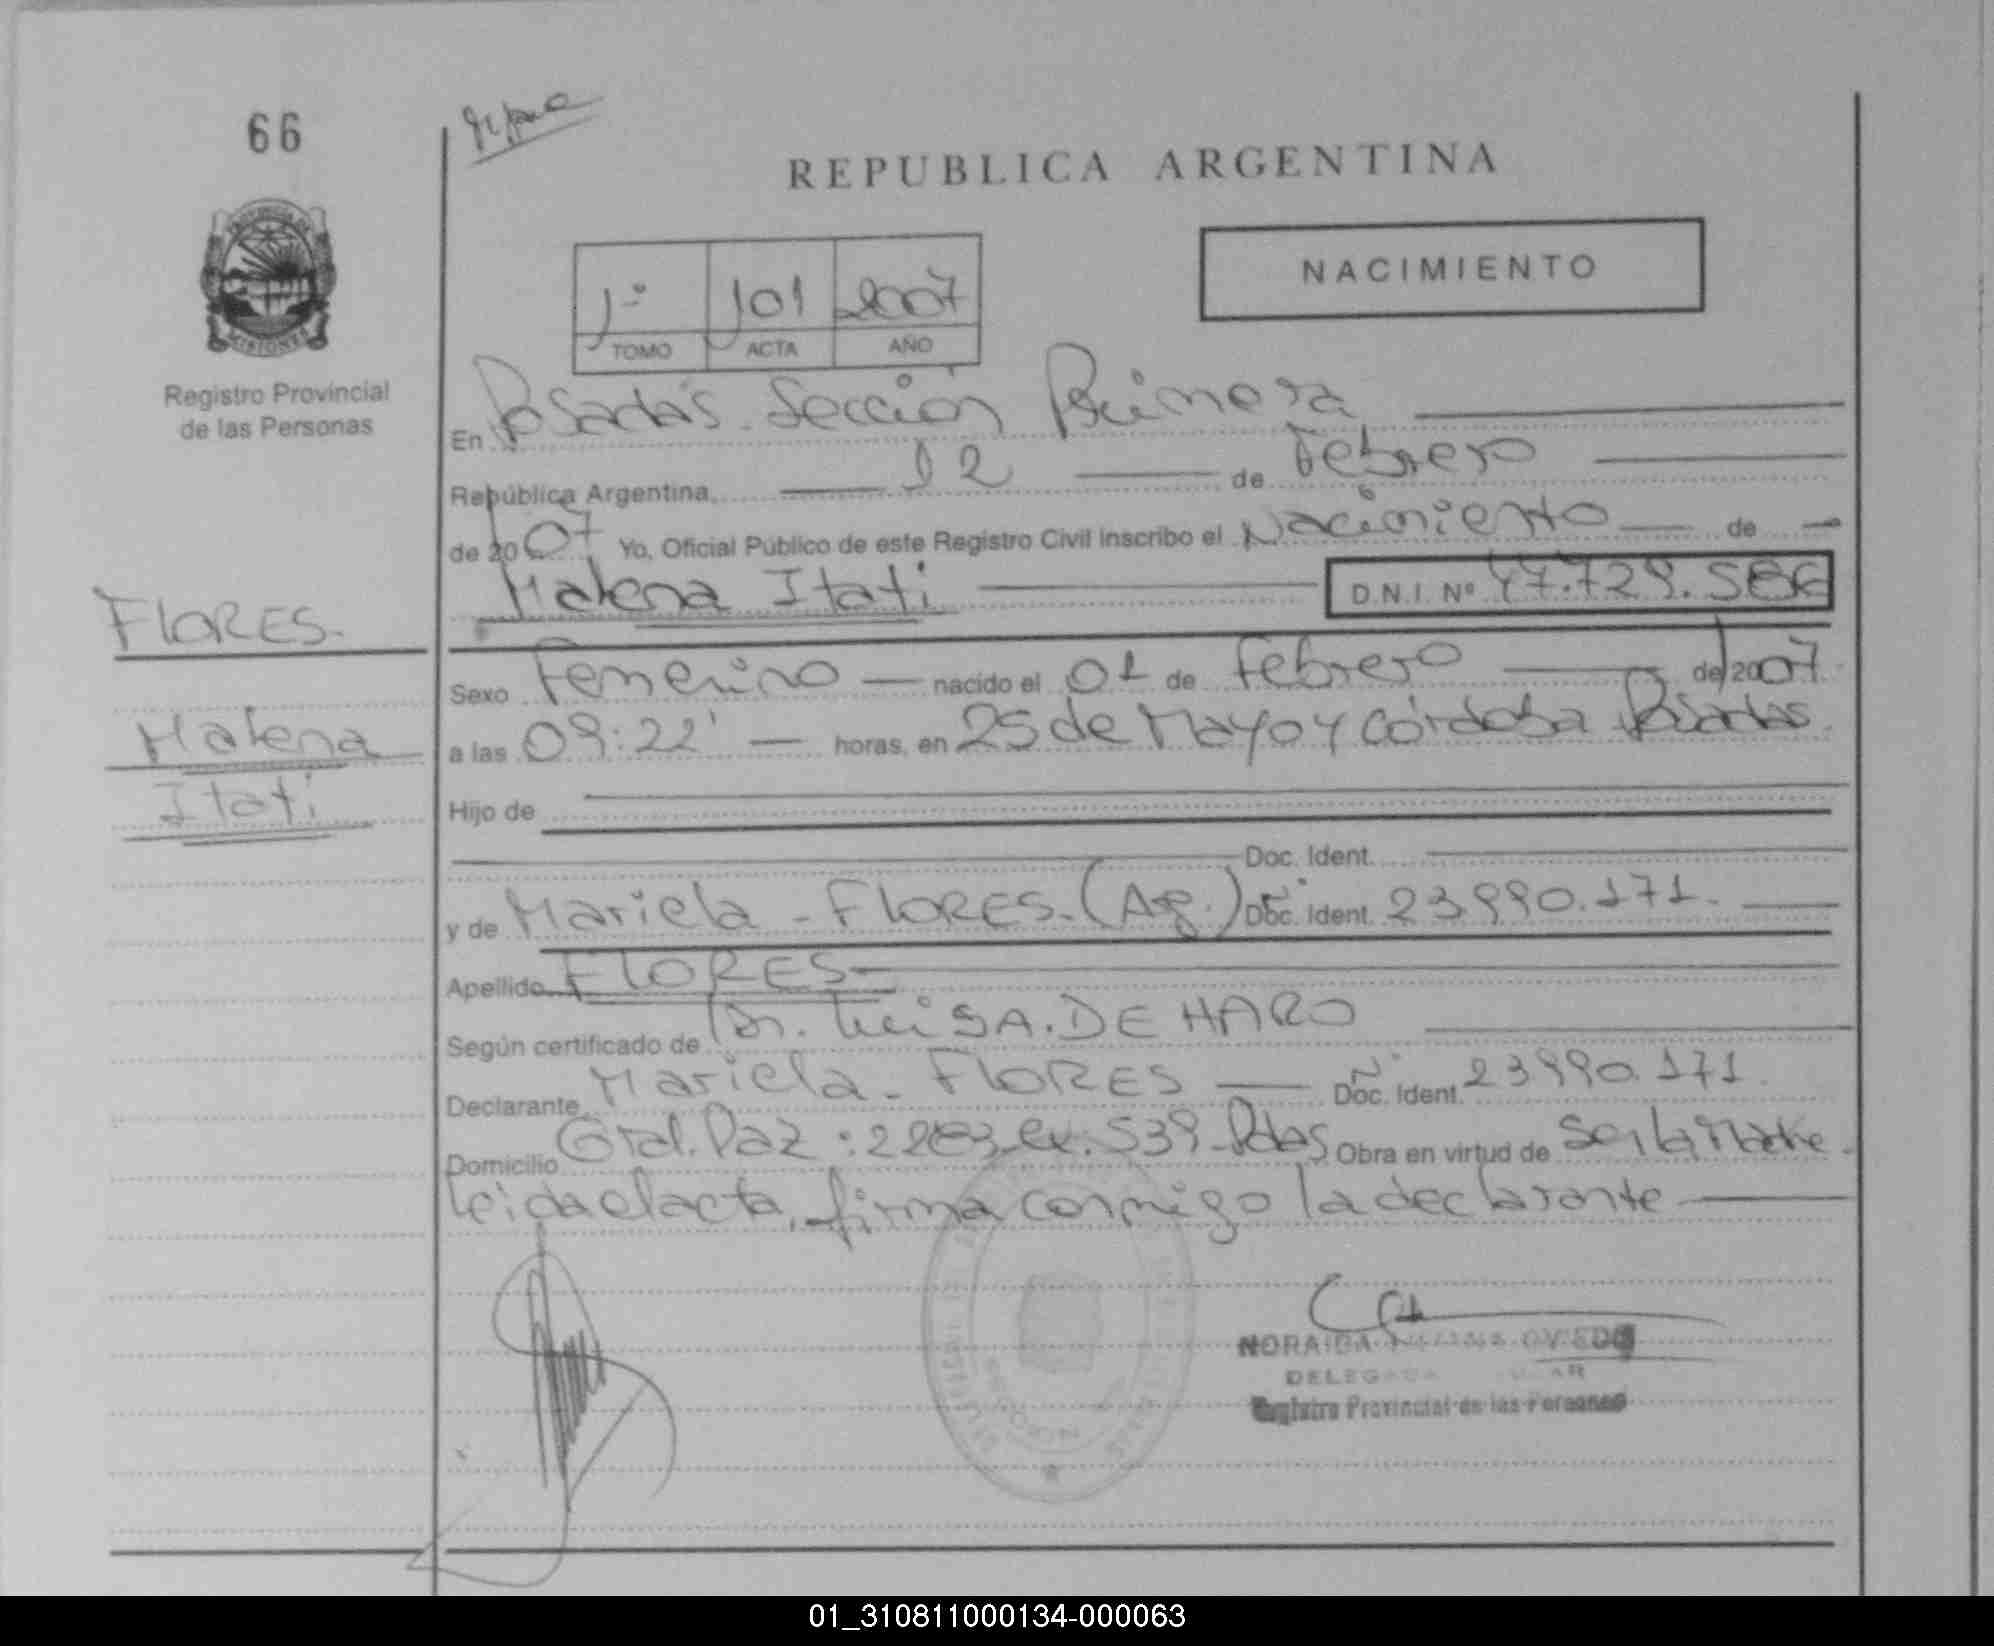 66
REPUBLICA ARGENTINA
1º 101 2007
TOMO ACTA AÑO
NACIMIENTO
PROVINCIA DE
MISIONES
Registro Provincial
de las Personas
En Posadas. Sección Primera
República Argentina, 12 de Febrero
de 2007 Yo, Oficial Público de este Registro Civil inscribo el Nacimiento de
Malena Itati D.N.I. Nº 47.729.
FLORES.
Malena
Itati
Sexo Femenino nacido el 01 de Febrero de 2007
a las 09:22' horas, en 25 de Mayo y Córdoba Posadas.
Hijo de
Doc. Ident.
y de Mariela - FLORES. (Ag.) Doc. Ident. 23990.171.
Apellido FLORES
Según certificado de Dr. Luis A. DE HARO
Declarante Mariela - FLORES Doc. Ident. 23990.171.
Domicilio Gral. Paz : ex. 539 - Pdas Obra en virtud de ser la Madre.
Leida el acta, firma conmigo la declarante
NORAIDA OVIEDO
DELEGADA
Registro Provincial de las Personas
01_310811000134-000063